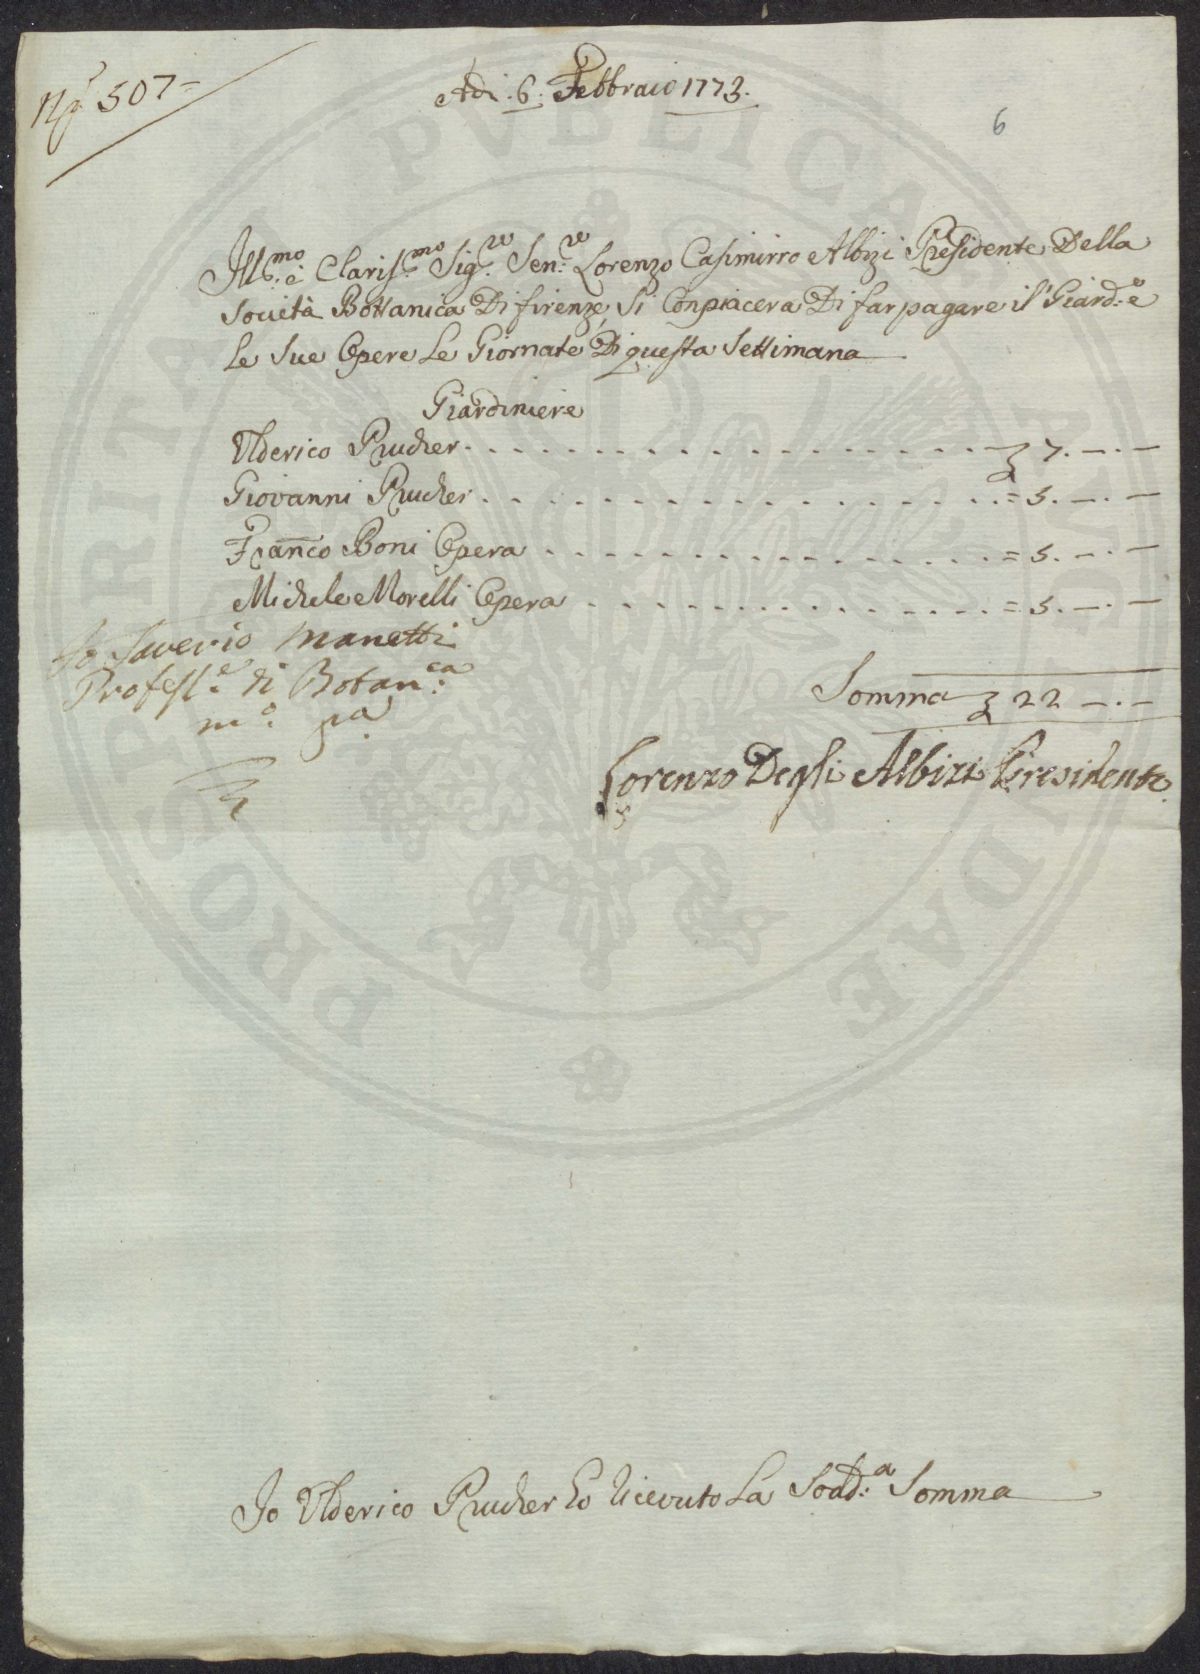 N.º 507=
Adi. 6. Febbraio 1773.
6
Ill.mo è Claris.mo Sig.re Sen.re Lorenzo Casimirro Albizi Presidente Della
Società Bottanica Di firenze, Si Conpiacera Di far pagare il Giard.e è
le Sue Opere Le Giornate Di questa Settimana
Giardiniere
Ulderico Prucher - - - - - - 7. —.—
Giovanni Prucher - - - - - - = 5. —.—
Franco Boni Opera - - - - - - = 5. —.—
Michele Morelli Opera - - - - - - = 5. —.—
Io Saverio Manetti
Profess.e di Botan.ca
m.o pa
Somma 22 —.—
Lorenzo Degli Albizi Presidente
Io Ulderico Prucher ho ricevuto La Sodd.a Somma
PROSPERITATI PVBLICAE AVGENDAE